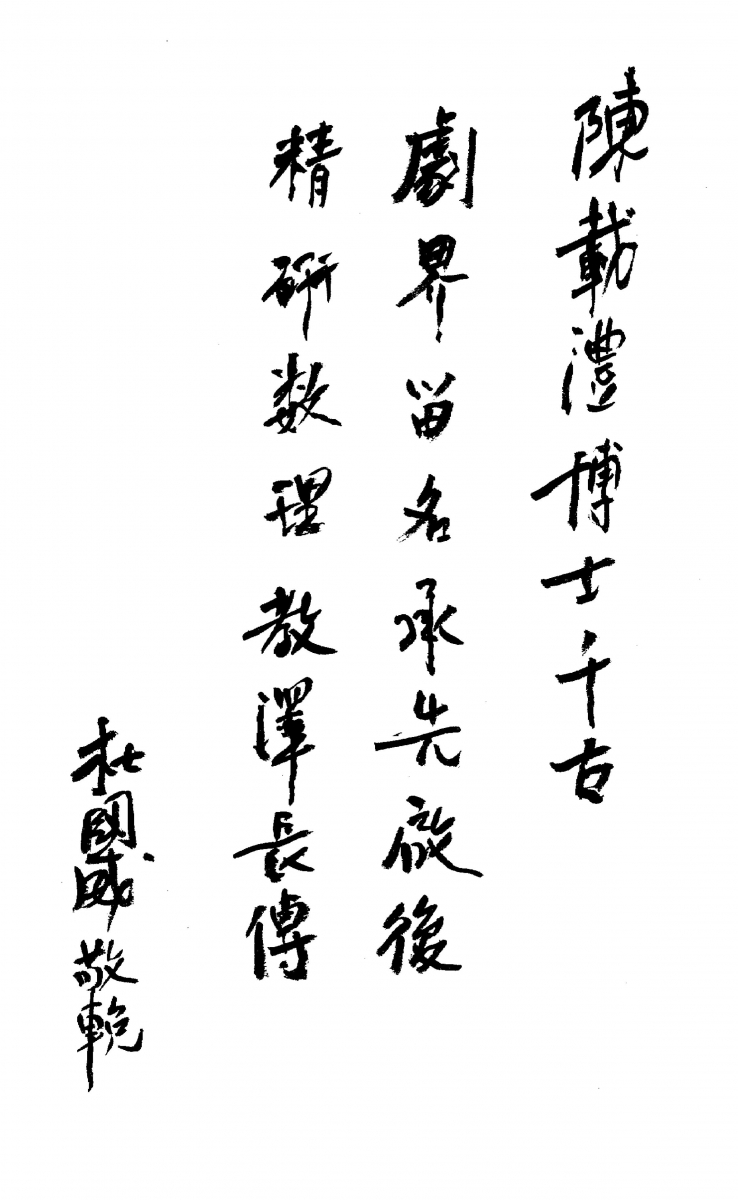 陳載澧博士千古
劇界留名承先啟後
精研数理教澤長傳
杜國威敬輓